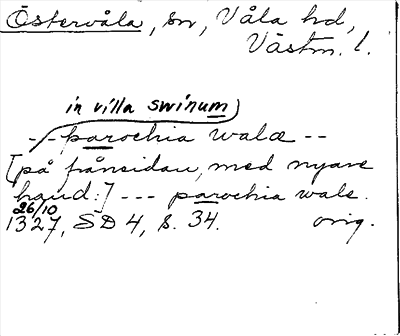 Östervåla, sn, Våla hd,
Västm. l.
in villa swinum
-- parochia walæ --
[på frånsidan, med nyare
hand:] --- parochia wale.
26/10
1327, SD 4, s. 34. orig.